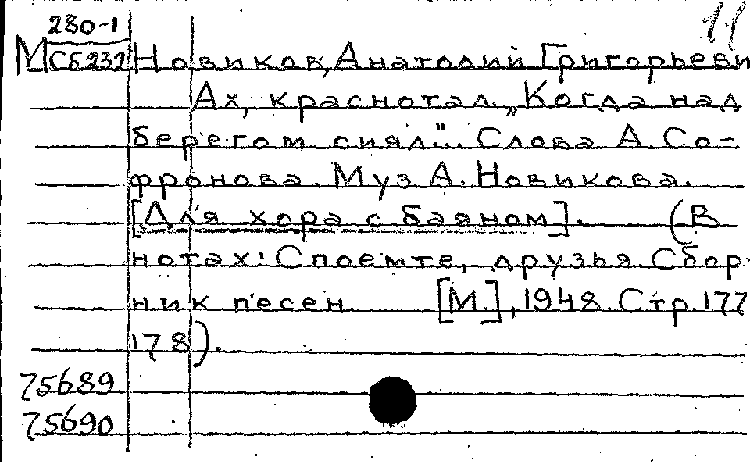 280-1
М Сб232 Новиков, Анатолий Григорьеви
Ах, краснотал. „Когда над
берегом сиял"... Слова А. Со-
фронова. Муз. А. Новикова.
[Для хора с баяном]. (В
нотах: Споемте, друзья. Сбор-
ник песен [М.], 1948. Стр. 177
178).
75689
75690